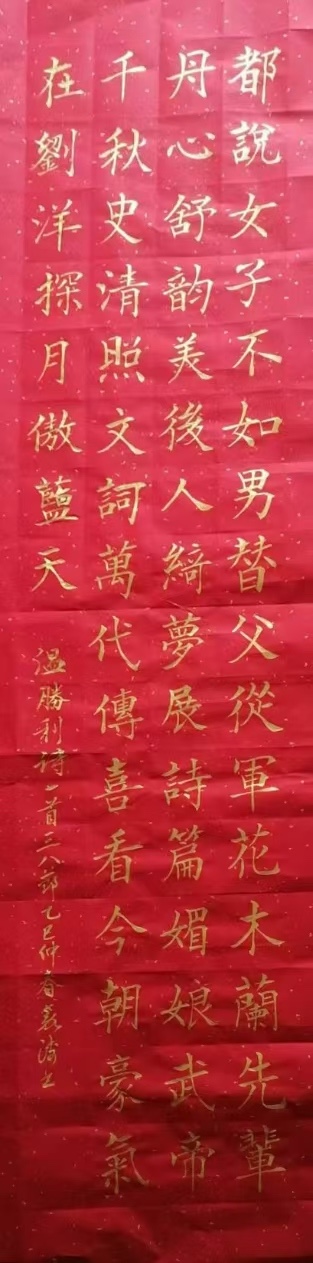 都說女子不如男替父從軍花木蘭先輩
丹心舒韵美後人綺夢展詩篇媚娘武帝
千秋史清照文詞萬代傳喜看今朝豪氣
在劉洋探月傲藍天
溫勝利詩一首三八節乙巳仲春